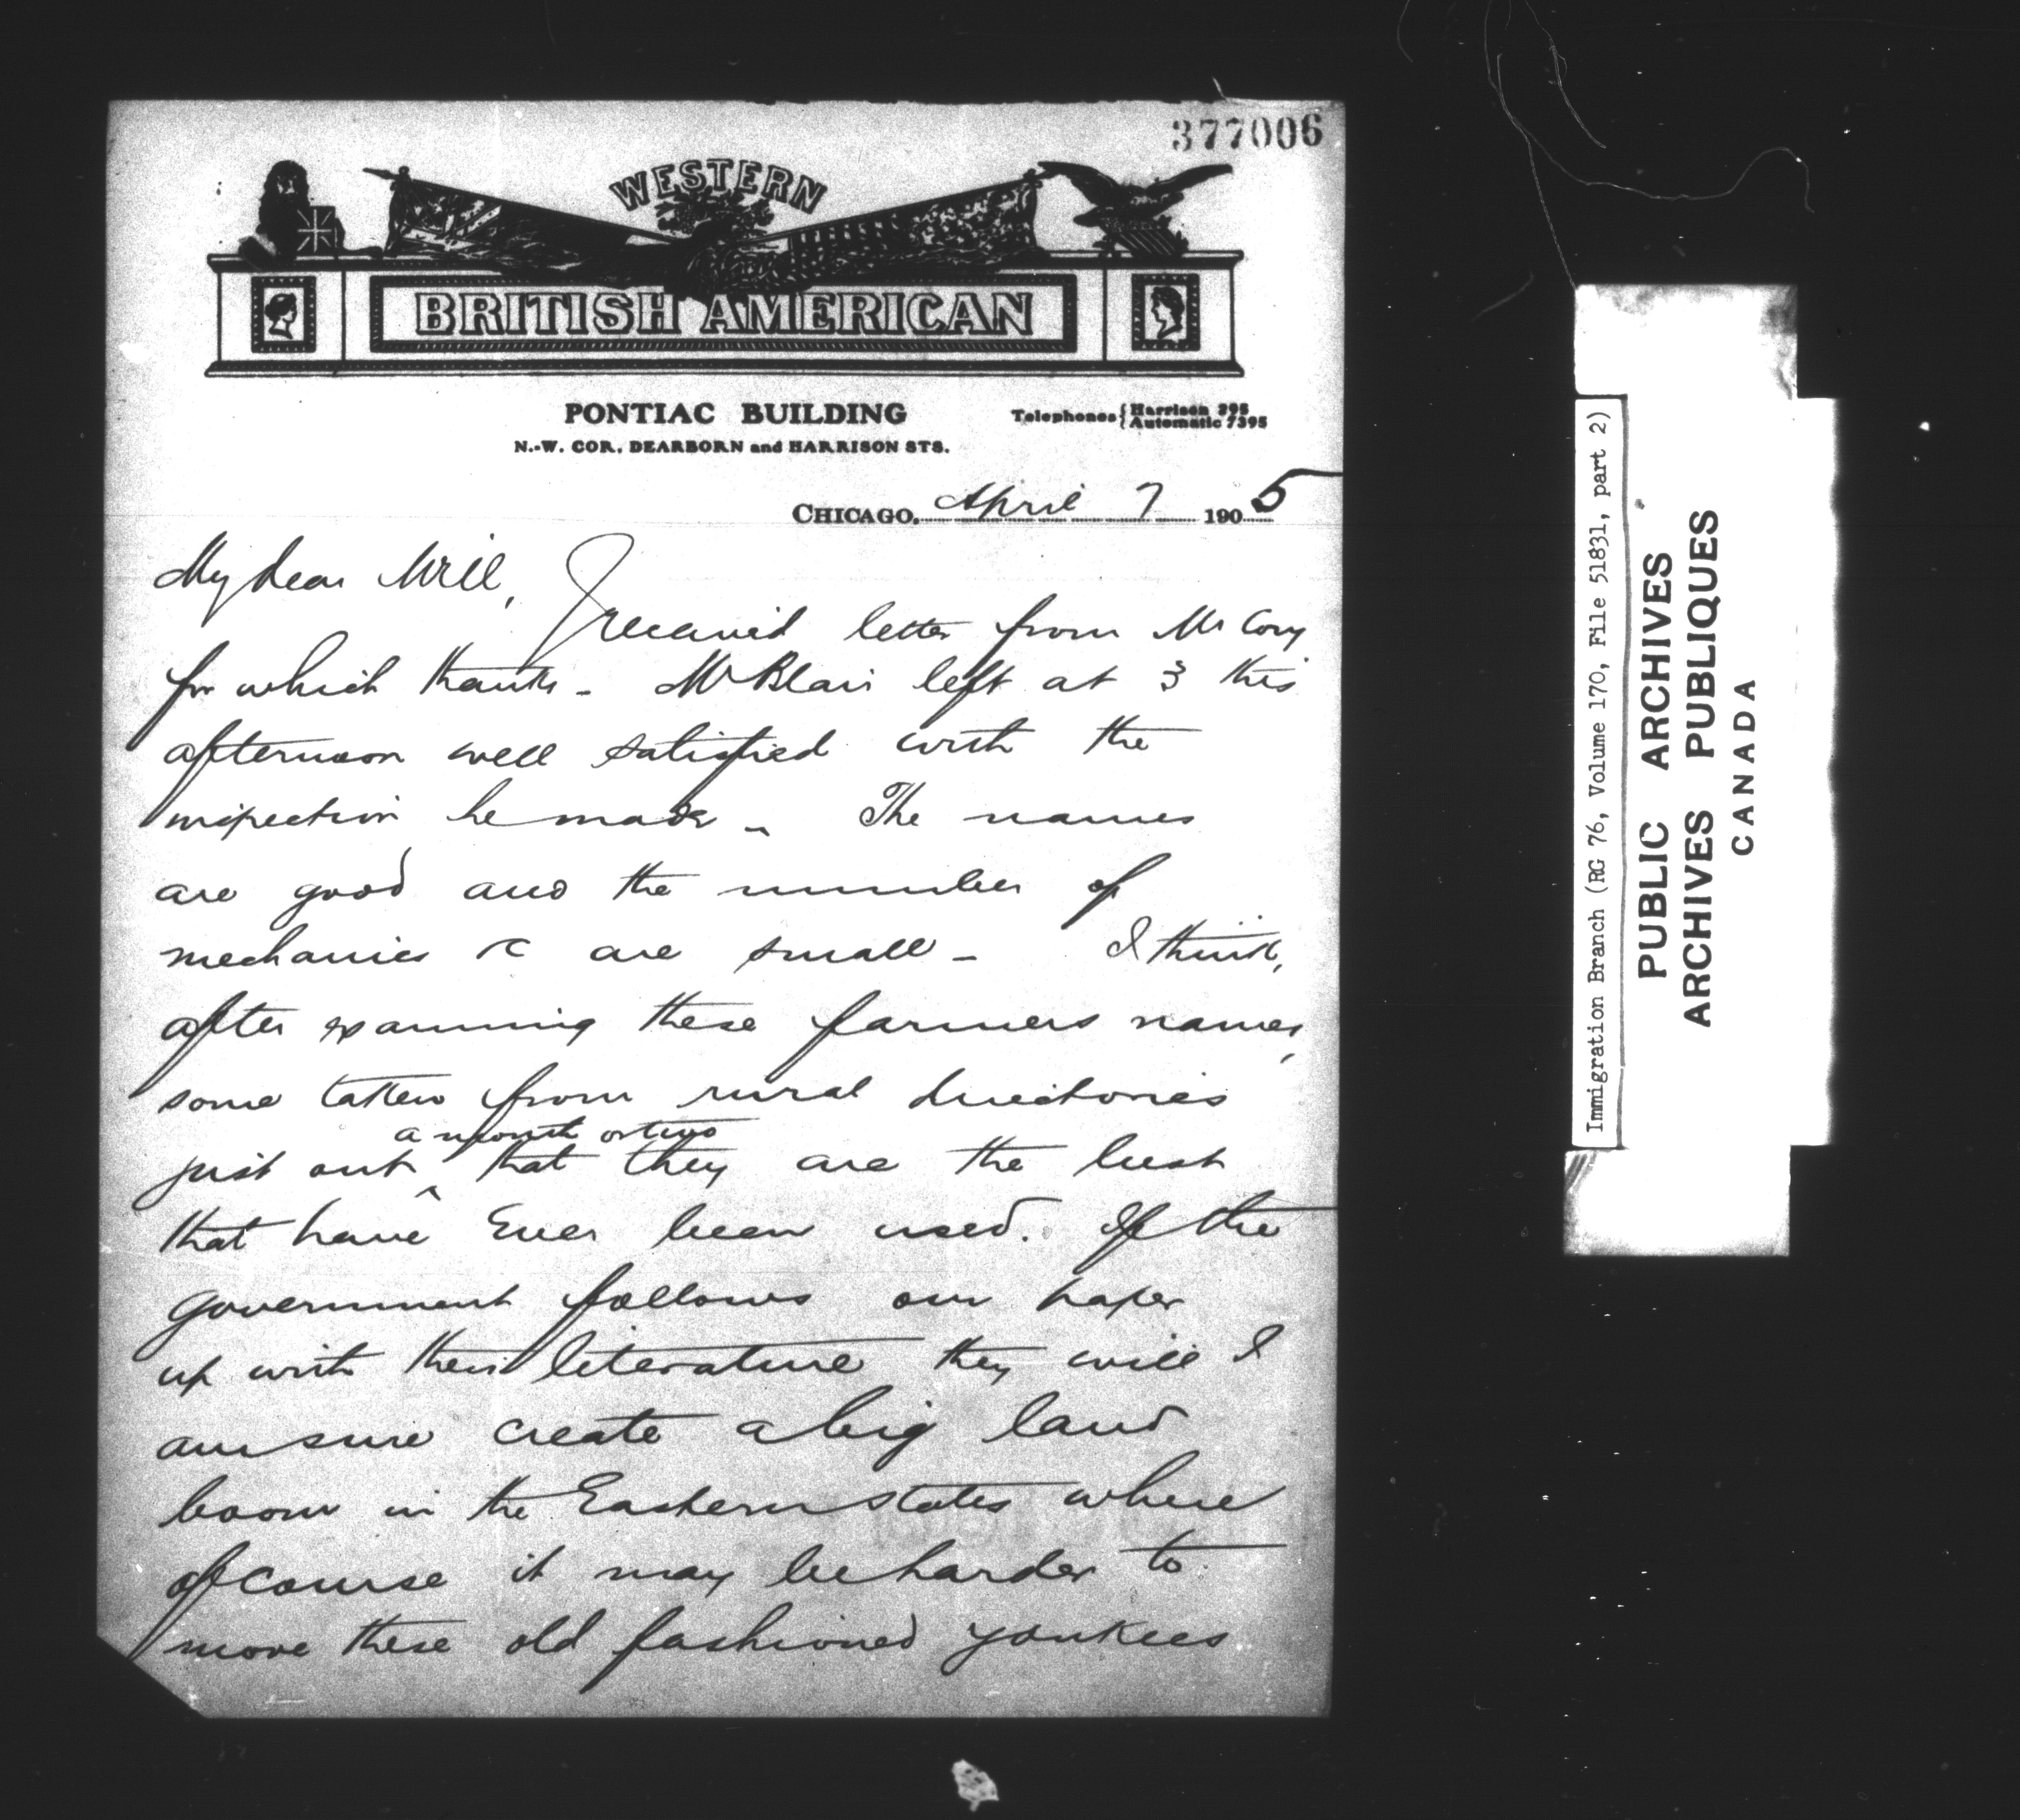 377006
WESTERN
BRITISH AMERICAN
PONTIAC BUILDING
N.-W. COR. DEARBORN and HARRISON STS.
Telephones { Harrison 395
Automatic 7395
CHICAGO, April 7 1905
My dear Will,
I received letter from Mr Cory
for which thanks - Mr Blair left at 3 this
afternoon well satisfied with the
inspection he made - The names
are good and the number of
mechanics &c are small - I think,
after examining these farmers names,
some taken from rural directories
just out a month or two that they are the best
that have ever been used. If the
government follows our paper
up with their literature they will I
am sure create a big land
boom in the Eastern states where
of course it may be harder to
move these old fashioned yankees
Immigration Branch (RG 76, Volume 170, File 51831, part 2)
PUBLIC ARCHIVES
ARCHIVES PUBLIQUES
CANADA